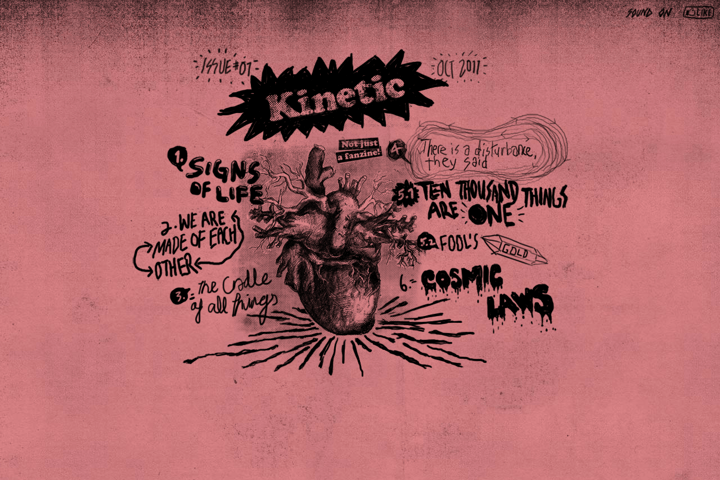 SOUND ON
LIKE
ISSUE #01
OCT 2011
Kinetic
Not just
a fanzine!
1.
SIGNS
OF LIFE
2. WE ARE
MADE OF EACH
OTHER
3.
the Cradle
of all things
4.
There is a disturbance,
they said
TEN THOUSAND THINGS
ARE ONE
FOOL'S
GOLD
6.
COSMIC
LAWS